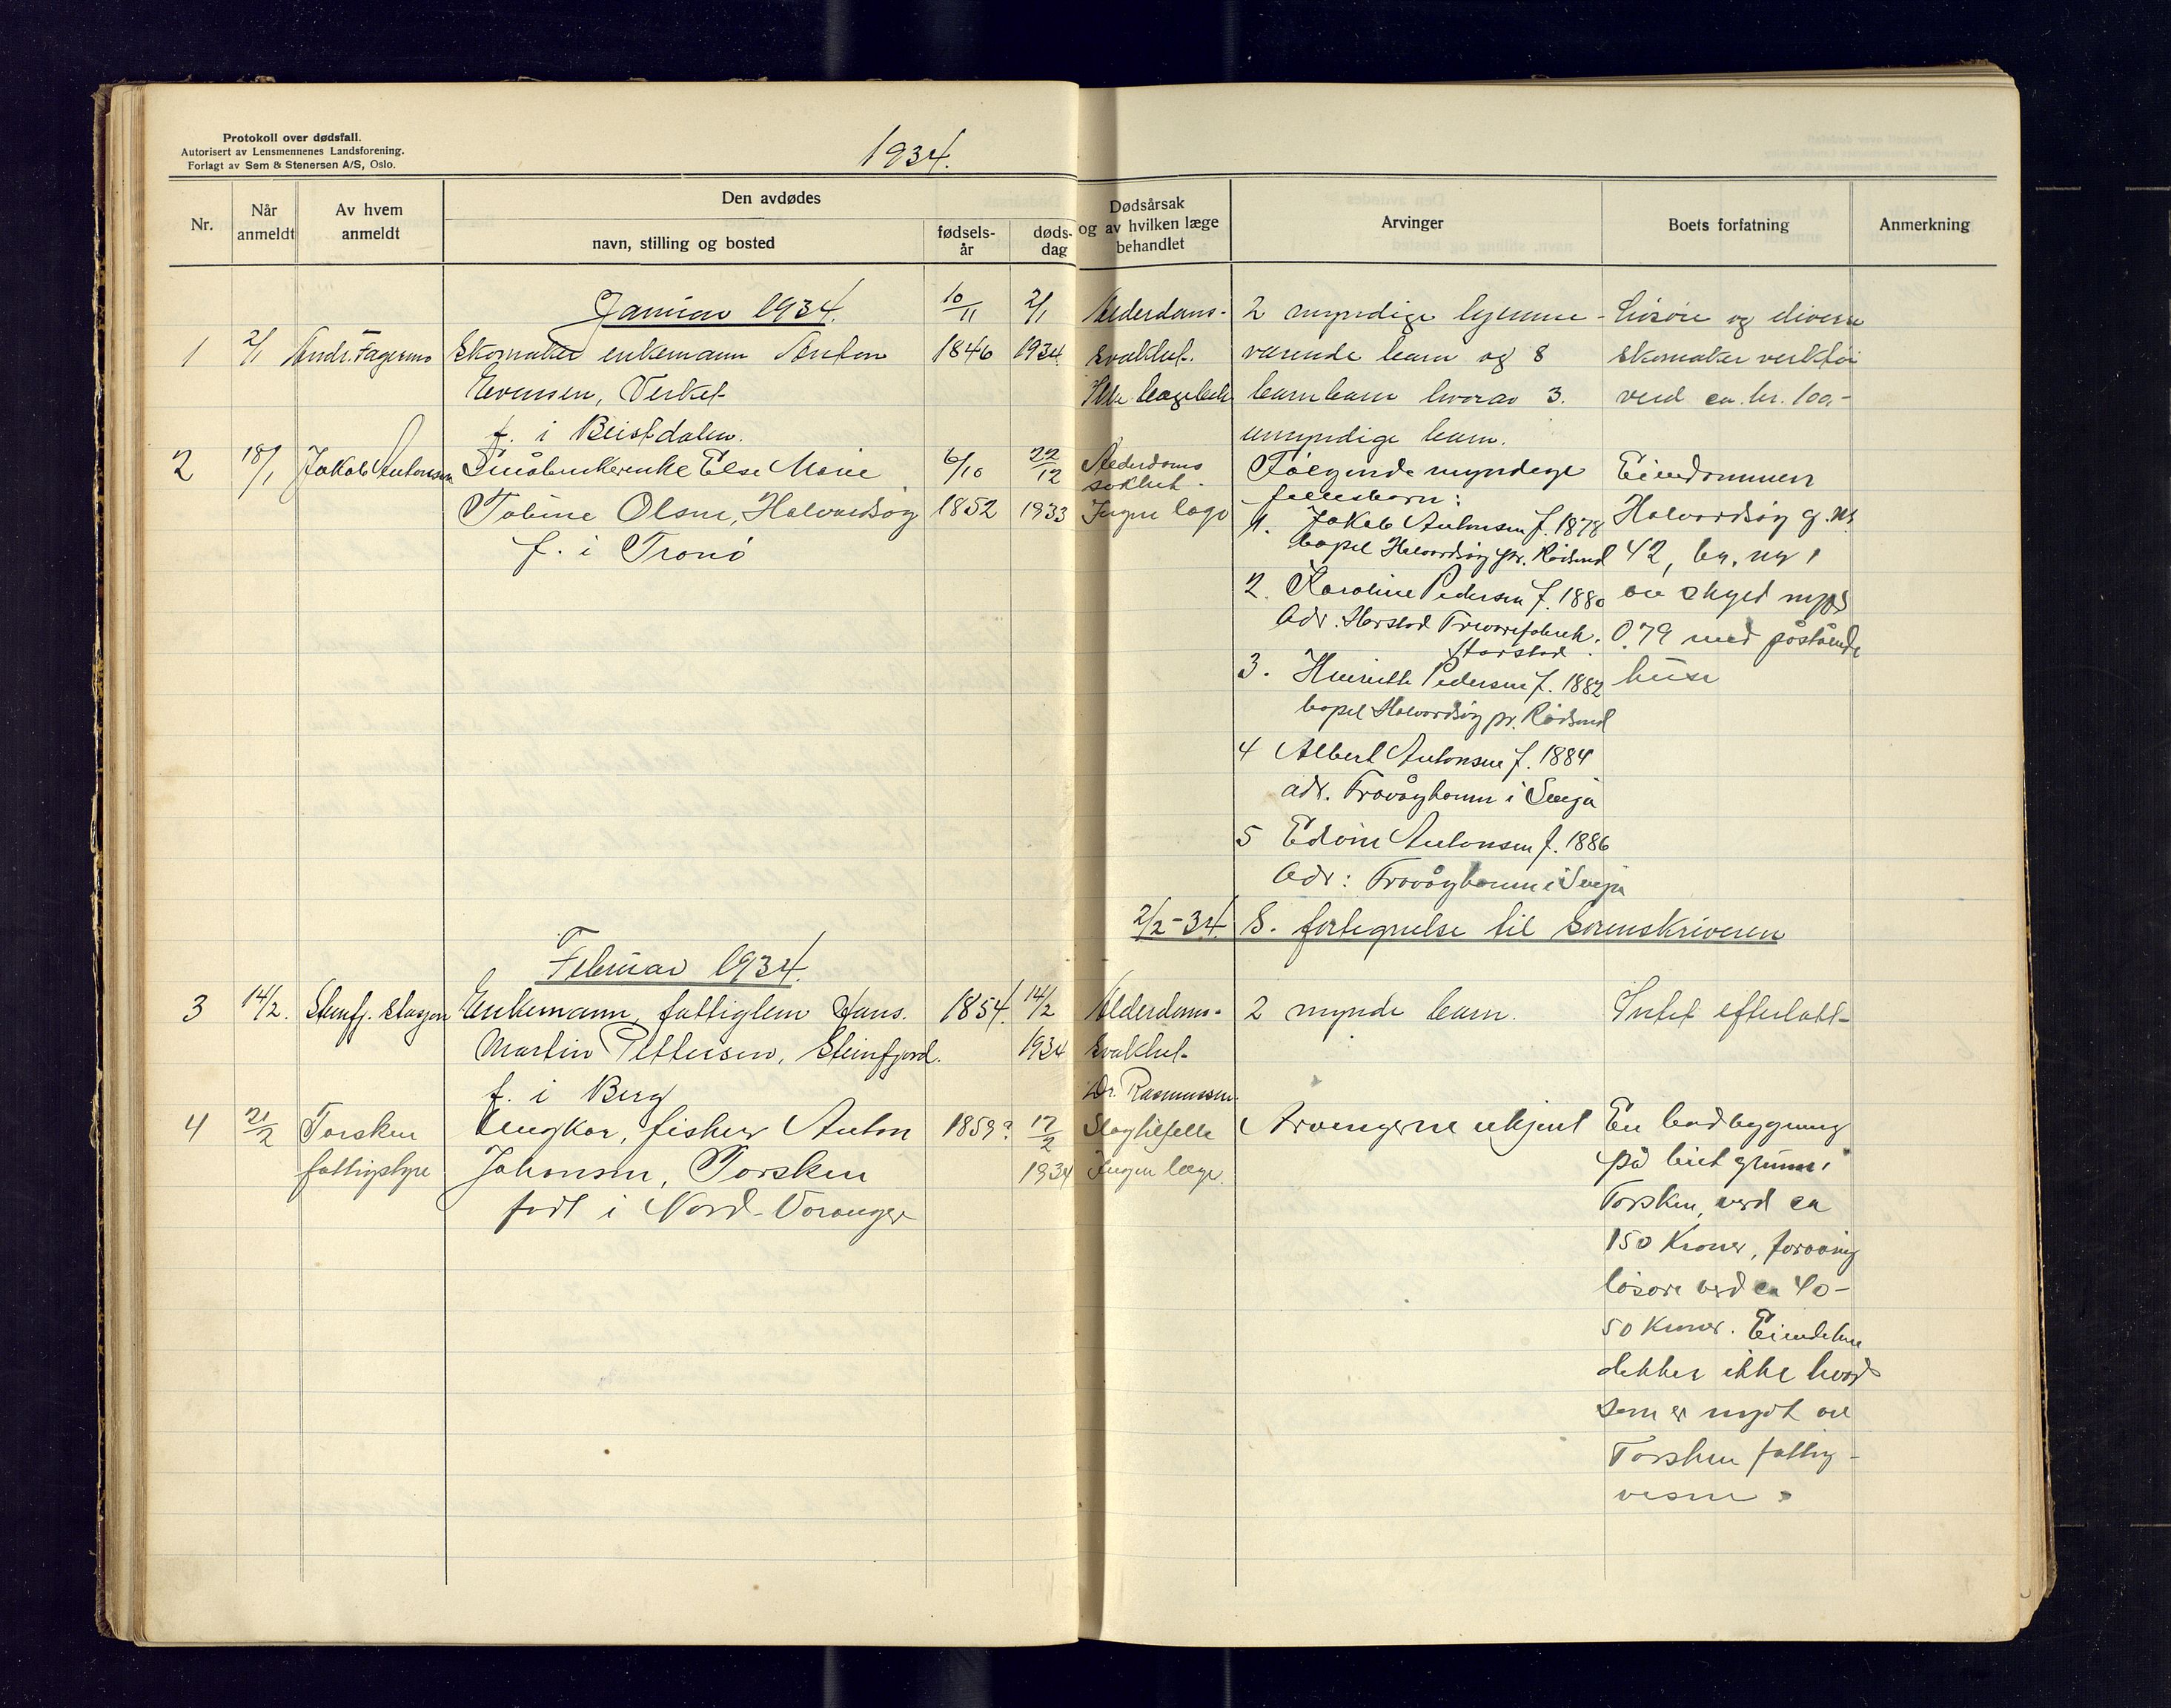 Protokoll over dødsfall.
Autorisert av Lensmennenes Landsforening.
Forlagt av Sem & Stenersen A/S, Oslo.
1934.
Nr.
Når anmeldt
Av hvem anmeldt
Den avdødes
navn, stilling og bosted
fødsels-år
døds-dag
Dødsårsak og av hvilken læge behandlet
Arvinger
Boets forfatning
Anmerkning
Januar 1934.
1
2/1
Andr. Fagermo
Skomaker enkemann Anton
Evensen, Verket
f. i Beistdalen.
10/11
1846
2/1
1934
Alderdoms-
svakhet.
Ikke lægebeh
2 myndige hjemme-
værende barn og 8
barnbarn hvorav 3.
umyndige barn.
Løsøre og diverse
skomaker verktøi
verd ca. kr. 100,-
2
18/1
Jakob Antonsen
Småbrukerenke Else Marie
Tobine Olsen, Halvardsøy
f. i Tranø
6/10
1852
22/12
1933
Alderdoms
svakhet.
Ingen læge
Følgende myndige
fellesbarn:
1. Jakob Antonsen f. 1878
bopel Halvardsøy pr. Rødsand
2. Karoline Pedersen f. 1880
Adr. Harstad Trevarefabrik.
Harstad.
3. Henriette Pedersen f. 1882
bopel Halvardsøy pr. Rødsand
4 Albert Antonsen f. 1884
adr. Trovåghamn i Senja
5 Edvin Antonsen f. 1886
Adr: Trovåghamn i Senja
Eiendommen
Halvardsøy g. nr
42, br. nr 1
av skyld mark
0.79 med påstående
huse
2/2-34. S. fortegnelse til Sorenskriveren
Februar 1934.
3
14/2.
Steinfj. stasjon
Enkemann, fattiglem Hans.
Martin Pettersen, Steinfjord.
f. i Berg
1854.
14/2
1934
Alderdoms-
svakhet.
Dr. Rasmussen.
2 mynde barn.
Intet efterlatt-
4
21/2
Torsken
fattigstyre
Ungkar, fisker Anton
Johansen, Torsken
født i Nord-Varanger
1859?
17/2
1934
Slagtilfelle
Ingen læge.
Arvingerne ukjent
En badbygning
på leiet grunn i
Torsken, verd ca
150 Kroner, forøvrig
løsøre verd ca 40-
50 Kroner. Eiendelene
dekker ikke hvad
som er nydt av
Torsken fattig-
vesen.